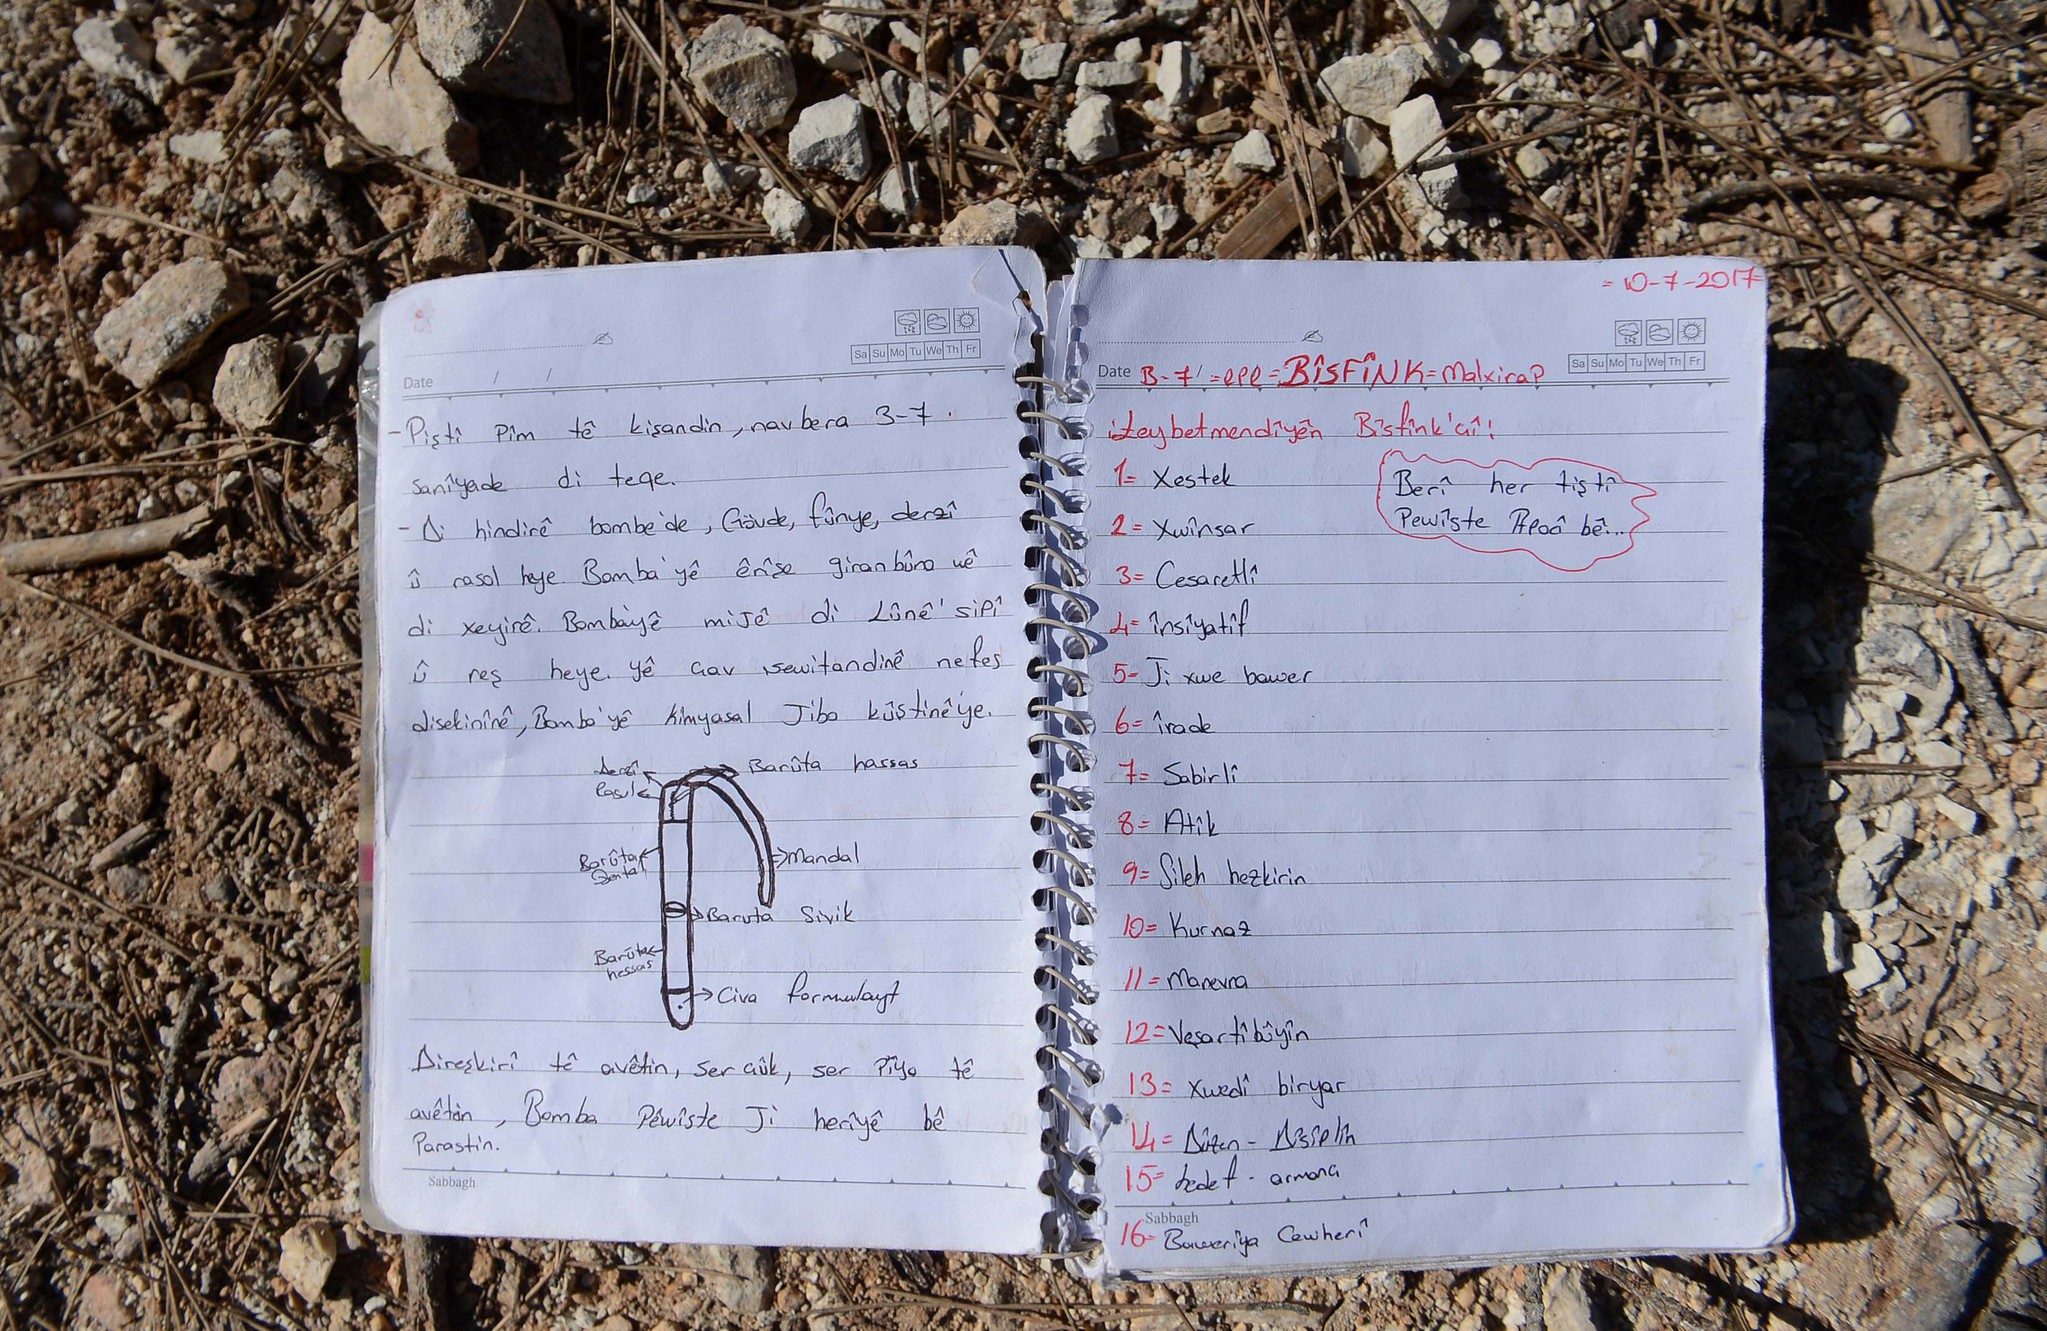 Date / /
Sa Su Mo Tu We Th Fr
- Piştî Pîm tê kişandin, navbera 3-7.
sanîyade di teqe.
- Di hindirê bombe'de, Gövde, fûnye, derzî
û rasol heye. Bomba'yê êrîşe giranbûna wê
di xeyirê. Bomba'yê mijê di Lûnê' sipî
û reş heye. Yê çav sewitandinê nefes
disekinînê, Bomba'yê kimyasal Jibo kûştinê'ye.
derzî
Rasul
Barûta hassas
Barûta
Mandal
Baruta Sivik
Barûta
hessas
Civa formulayt
Direşkirî tê avêtin, ser çûk, ser Pîya tê
avêtin, Bomba Pêwîste Ji herîyê bê
Parastin.
Sabbagh
= 10-7-2017
Sa Su Mo Tu We Th Fr
Date B-7 = = BîSFîNK = Malxirap
taybetmendîyên Bîsfînk'çî!
1= Xestek
Berî her tiştî
Pewîşte Apocî bê...
2= Xwînsar
3= Cesaretlî
4= însîyatîf
5- Ji xwe bawer
6= îrade
7= Sabirlî
8= Atik
9= Sileh hezkirin
10= Kurnaz
11= Manevra
12= Veşartîbûyîn
13= Xwedî biryar
14= Düzen - Dîsîplîn
15= hedef - armanc
Sabbagh
16- Baweriya Cewherî